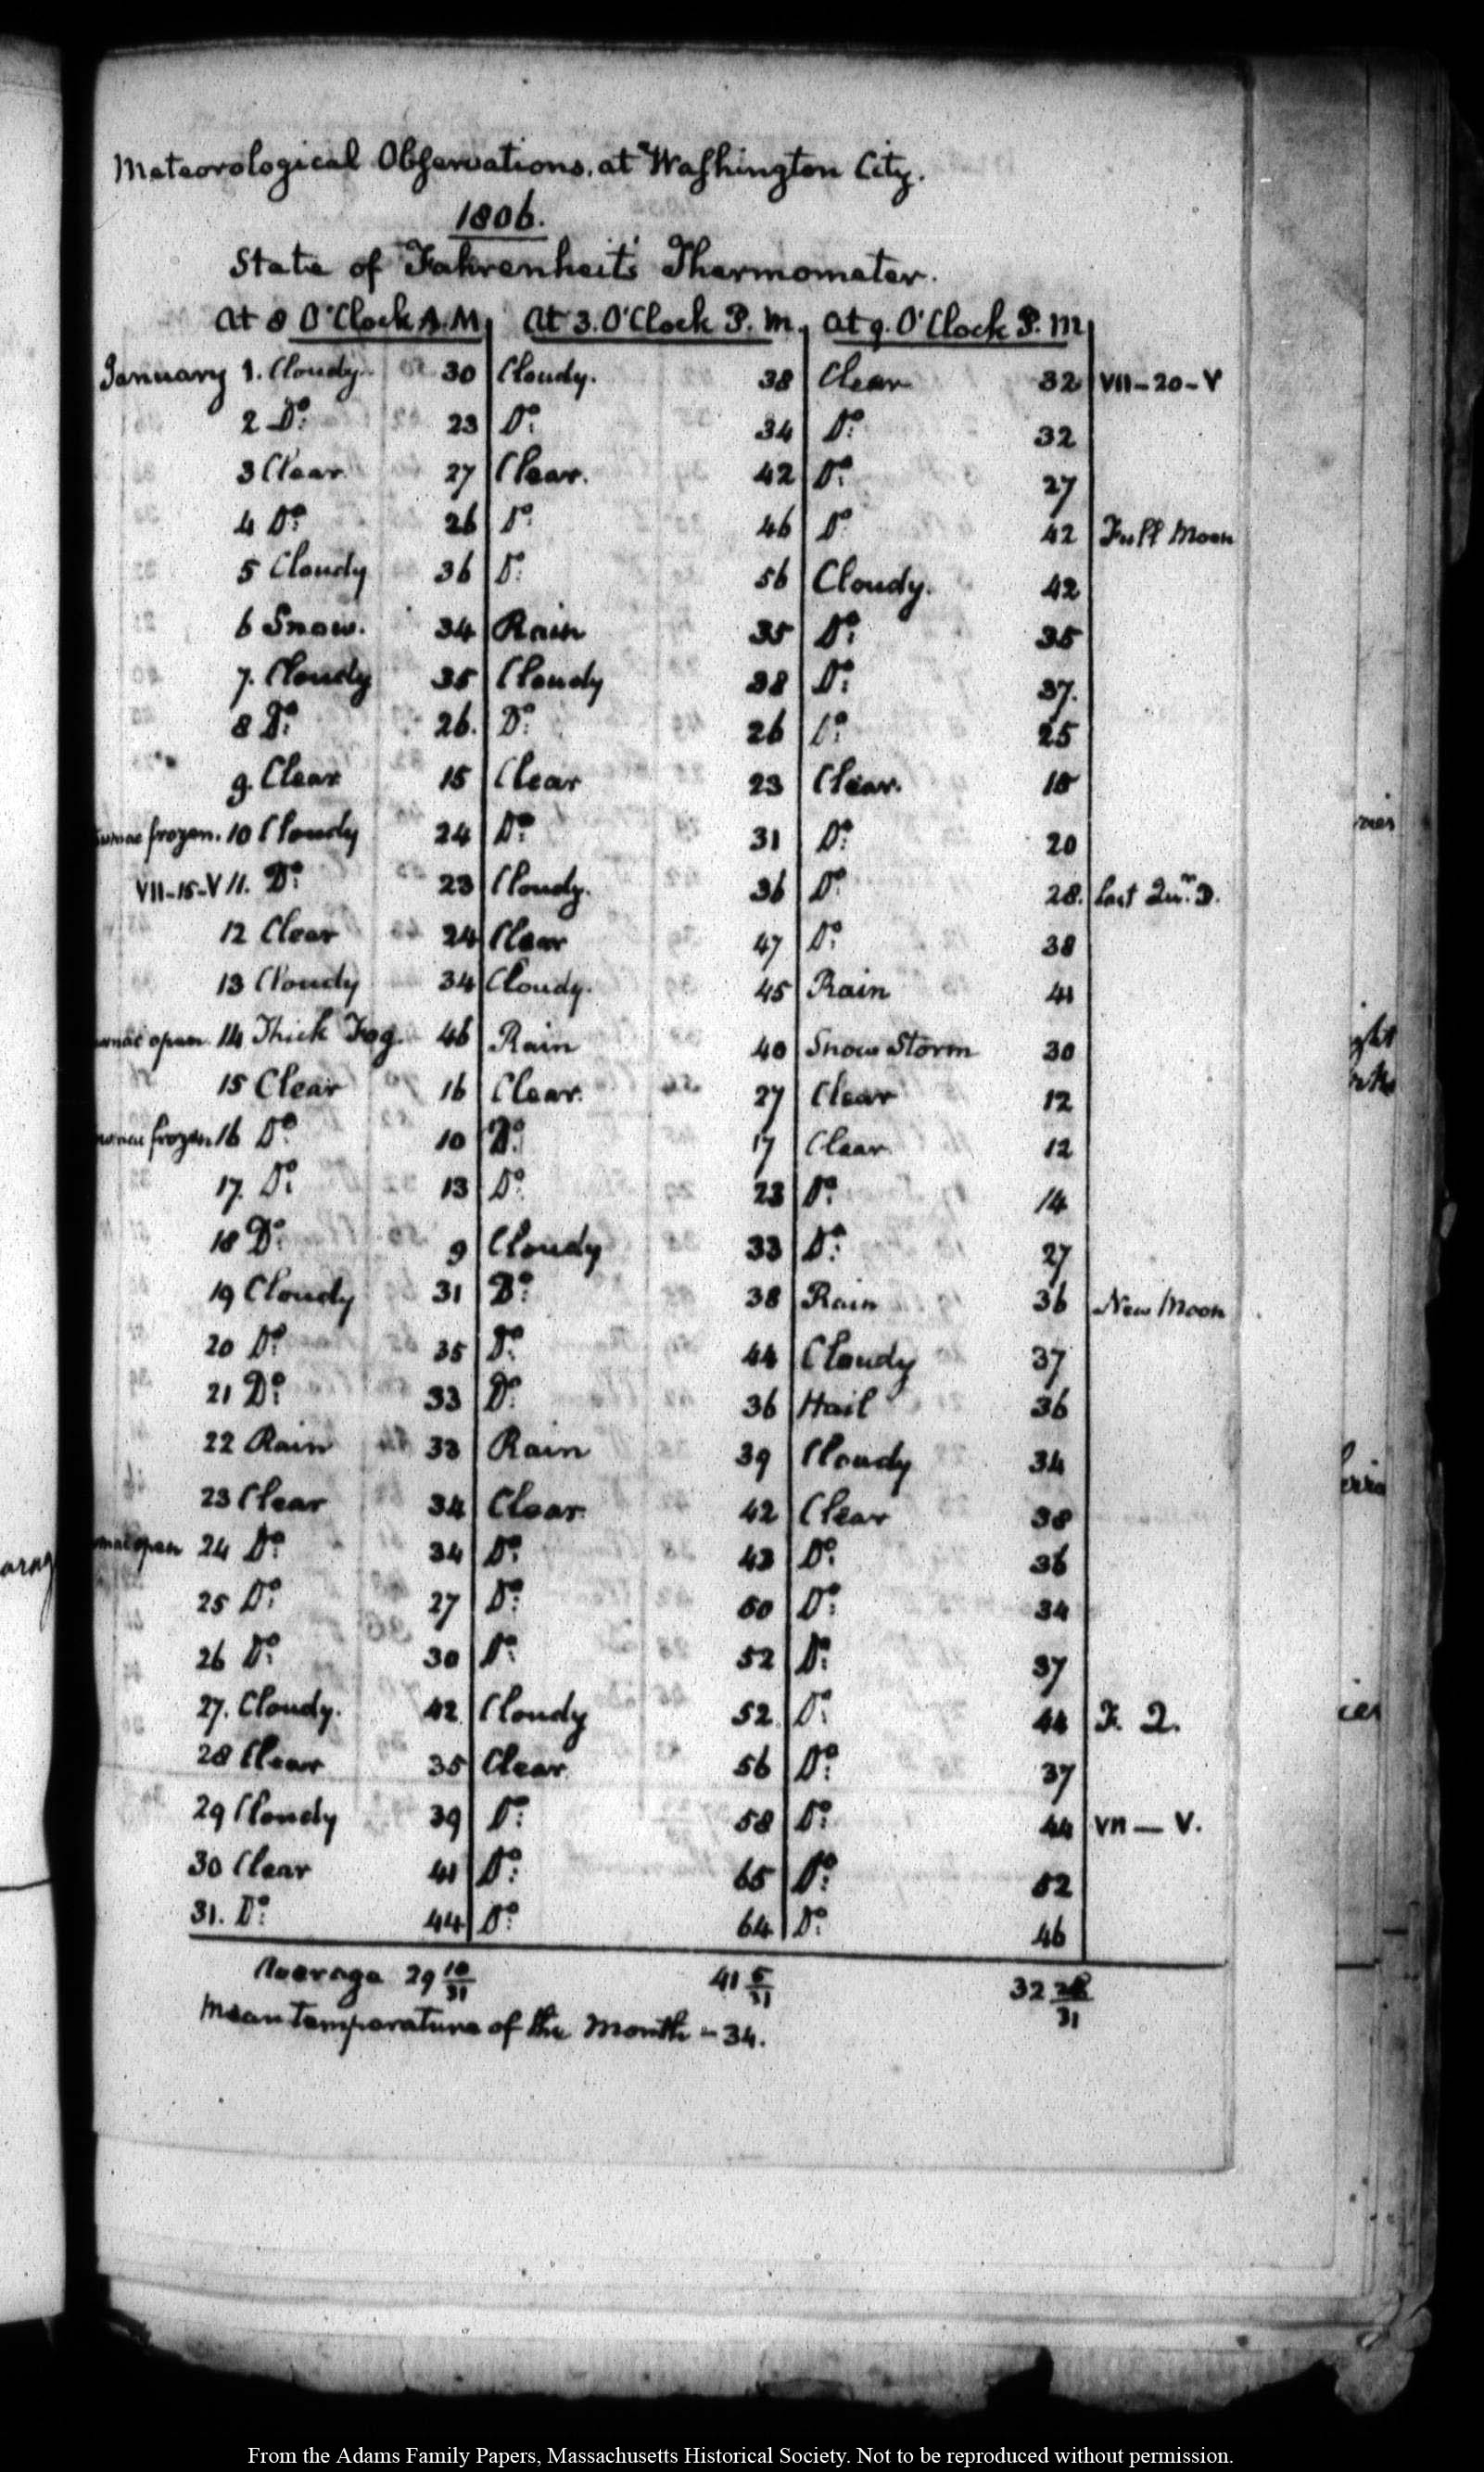 Meteorological Observations, at Washington City.
1806.
State of Fahrenheit's Thermometer.
at 8 O'Clock A.M. at 3. O'Clock P. M. at 9. O'Clock P. M
January 1. Cloudy. 30 Cloudy. 38 Clear 32 VII-20-V
2 Do: 23 Do: 34 Do: 32
3 Clear 27 Clear. 42 Do: 27
4 Do: 26 Do: 46 Do 42 Full Moon
5 Cloudy 36 Do: 56 Cloudy. 42
6 Snow. 34 Rain 35 Do: 35
7. Cloudy 35 Cloudy 38 Do: 37.
8 Do: 26. Do: 26 Do: 25
9. Clear 15 Clear 23 Clear. 15
frozen. 10 Cloudy 24 Do: 31 Do: 20
VII-15-V 11. Do: 23 Cloudy. 36 Do: 28. last Qur. D.
12 Clear 24 Clear 47 Do: 38
13 Cloudy 34 Cloudy. 45 Rain 41
open. 14 Thick Fog. 46 Rain 40 Snow Storm 30
15 Clear 16 Clear. 27 Clear 12
frozen 16 Do: 10 Do: 17 Clear. 12
17. Do: 13 Do: 23 Do: 14
18 Do: 9 Cloudy 33 Do: 27
19 Cloudy 31 Do: 38 Rain 36 New Moon
20 Do: 35 Do: 44 Cloudy 37
21 Do: 33 Do: 36 Hail 36
22 Rain 33 Rain 39 Cloudy 34
23 Clear 34 Clear 42 Clear 38
open 24 Do: 34 Do: 43 Do: 36
25 Do: 27 Do: 50 Do: 34
26 Do: 30 Do: 52 Do: 37
27. Cloudy. 42 Cloudy 52 Do: 44 F. Q.
28 Clear 35 Clear. 56 Do: 37
29 Cloudy 39 Do: 58 Do: 44 VII — V.
30 Clear 41 Do: 65 Do: 52
31. Do: 44 Do: 64 Do: 46
Average 29 10/31 41 5/31 32 28/31
Mean temperature of the Month - 34.
From the Adams Family Papers, Massachusetts Historical Society. Not to be reproduced without permission.